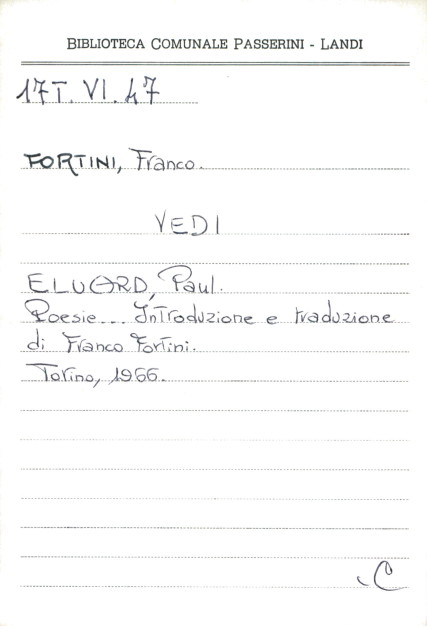 BIBLIOTECA COMUNALE PASSERINI - LANDI
17T. VI. 47
FORTINI, Franco.
VEDI
ELUARD, Paul.
Poesie... Introduzione e traduzione
di Franco Fortini.
Torino, 1966.
C